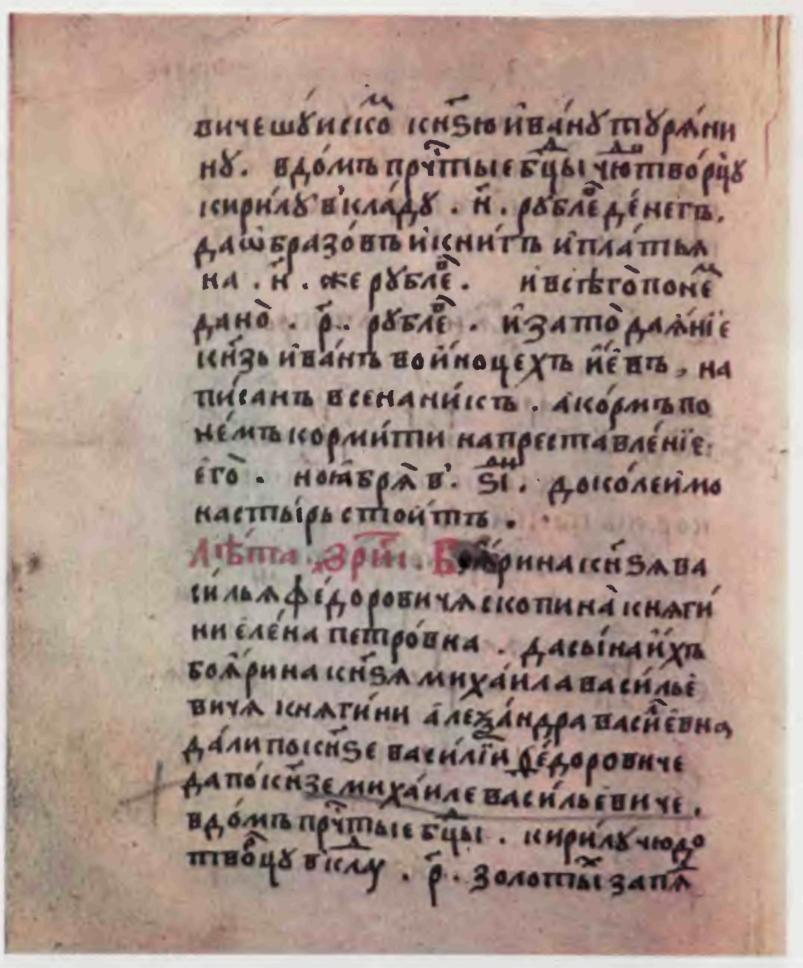 вичешꙋискоⷨ кн҃ѕю ива́нꙋ тꙋрѧ́ни
нꙋ. вдо́мъ прⷱ҇тые бцⷣы чюⷣтво́рцꙋ
кири́лꙋ в̾кла́дꙋ . н҃ . рꙋблеⷡ҇ де́негъ.
да ѡбразо́въ и книгъ и пла́тьѧ
на . н҃ . же рꙋблеⷡ҇ . и всѣго̀ по неⷨ
дано̀ . р҃ . рꙋблеⷡ҇ . и за то̀ даѧ́нїе
кн҃зь ива́нъ во и҆ноцехъ иевъ, на
пи́санъ в сенани́къ . а ко́рмъ по
не́мъ корми́ти на преставле́нїе
его̀ . ноѧбрѧ̀ в̾ . ѕ҃і . доко́ле и мо
насты́рь стои́тъ .
Лѣта ҂зрⷢ҇і . Боѧрина кн҃ѕѧ ва
си́льѧ фе́доровичѧ скопина̀ кнѧги́
ни еле́на петро́вна . да сы́на и́хъ
боѧ́рина кн҃ѕѧ миха́ила васи́лье
вичѧ кнѧги́ни алеѯа́ндра васиⷧ҇евна
да́ли по кн҃ѕе васи́лїи фе́доровиче
да по кн҃зе миха́иле васи́льевиче .
вдо́мъ прⷱ҇тые бцⷣы . кири́лꙋ чюдо
твоⷬ҇цꙋ в̾клаⷣ . р҃ . золотыⷯ за пѧⷮ